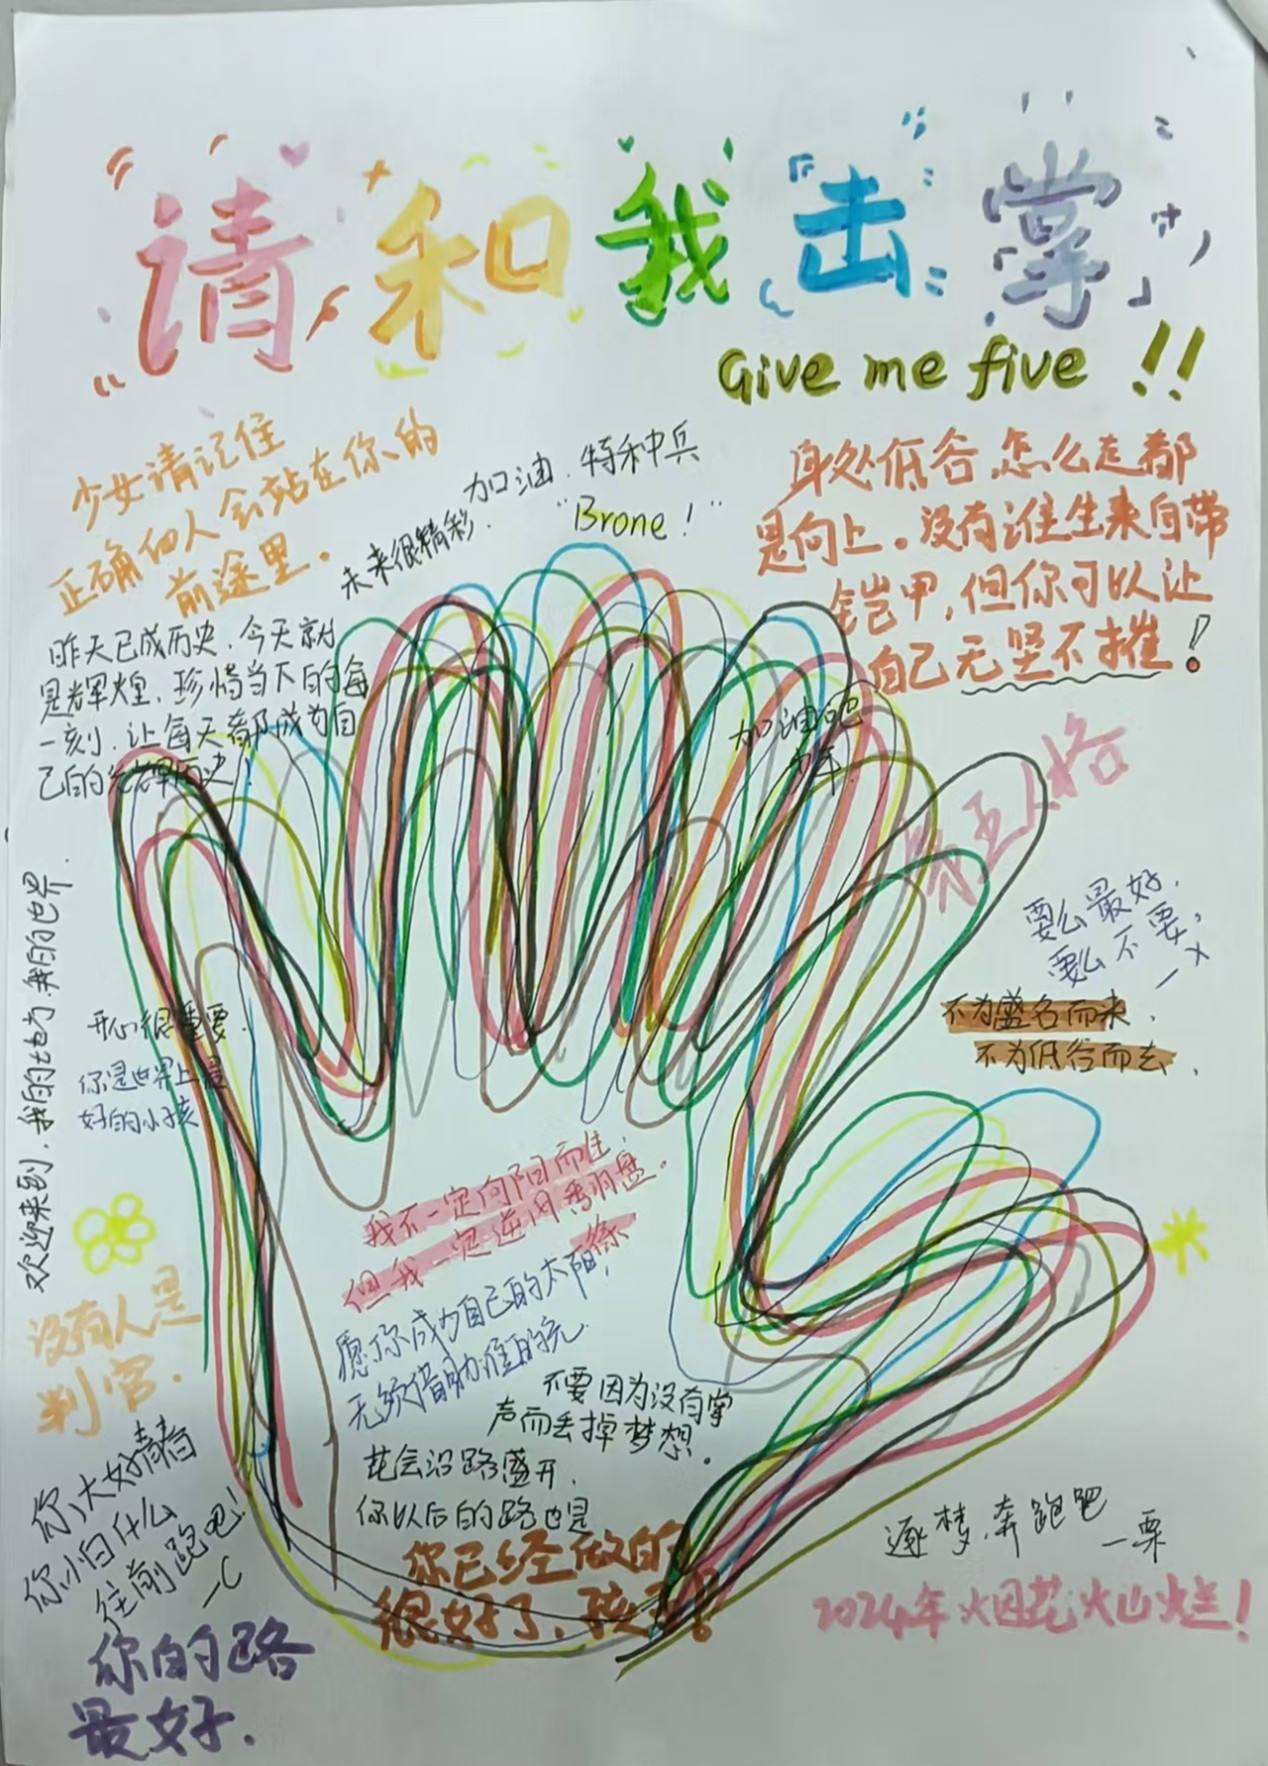 请和我击掌
Give me five !!
少女请记住
正确的人会站在你的
前途里。
加油.特种兵
"Brone!"
未来很精彩.
身处低谷.怎么走都
是向上。没有谁生来自带
铠甲,但你可以让
自己无坚不摧!
昨天已成历史.今天就
是辉煌.珍惜当下的每
一刻.让每天都成为自
己的光辉历史!
加油吧
少年.
第五人格
要么最好.
要么不要,
—X
不为盛名而来.
不为低谷而去.
欢迎来到.我的地方.我的世界.
开心很重要.
你是世界上最
好的小孩
我不一定向阳而生.
但我一定逆风
愿你成为自己的太阳,
无须借助谁的光.
不要因为没有掌
声而丢掉梦想.
花会沿路盛开.
你以后的路也是
你已经做的
很好了,孩子!
没有人是
判官.
你大好青春
你小白什么
往前跑吧!
—C
你的路
最好.
逐梦.奔跑吧
—栗
2024年火因花火山烂!